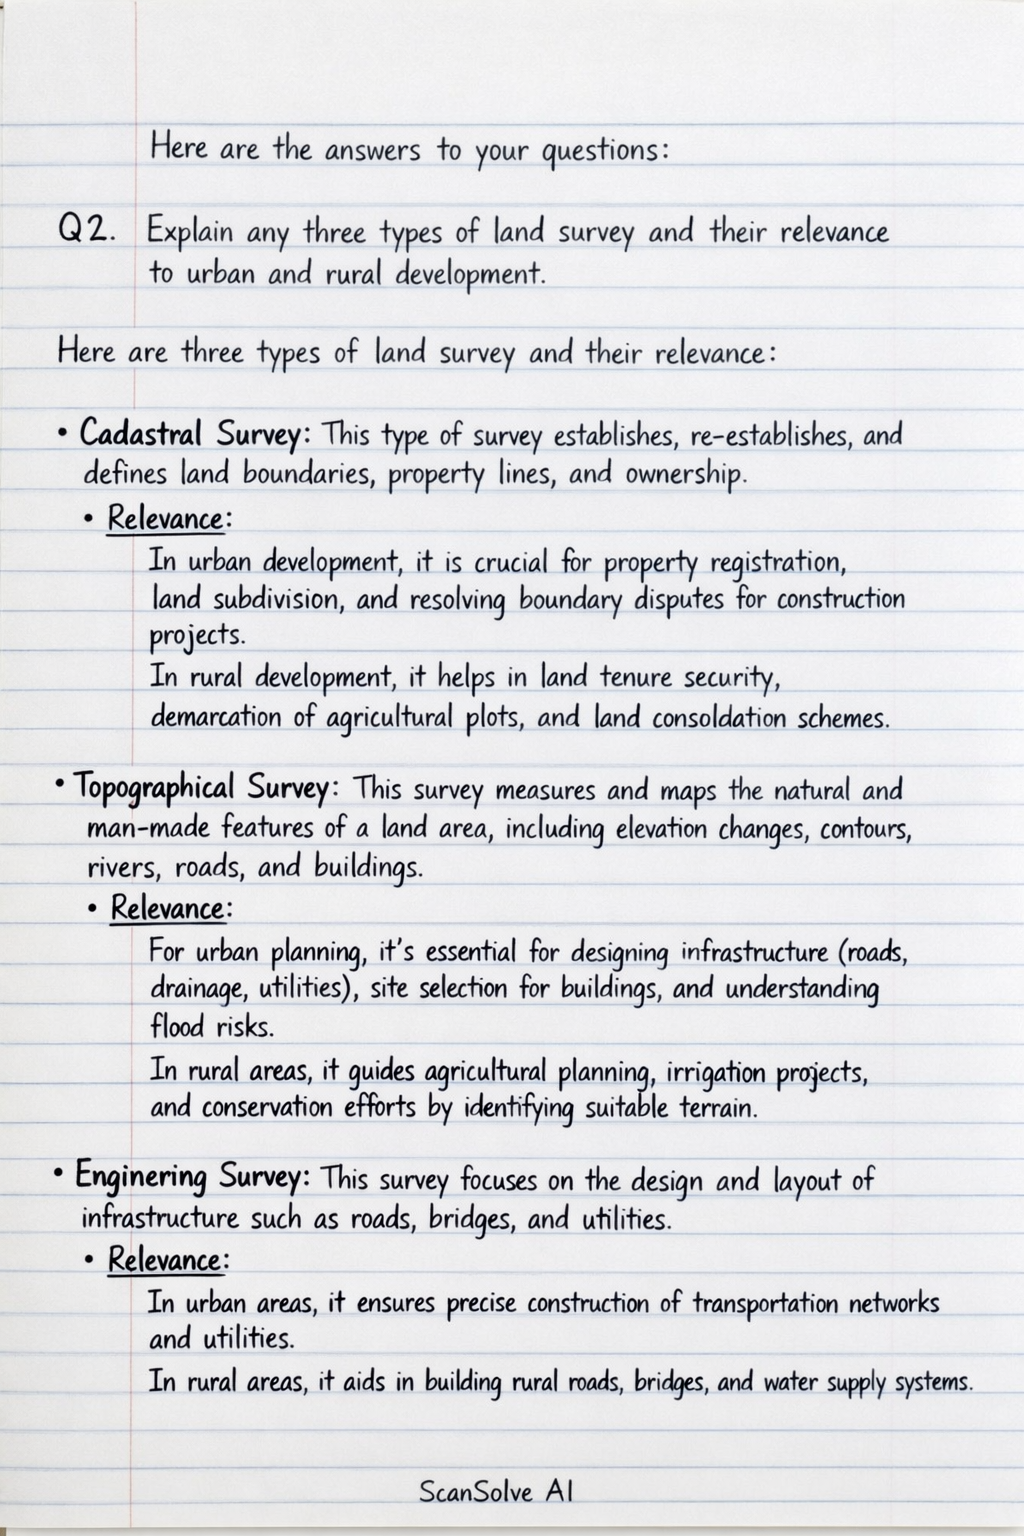 Here are the answers to your questions:
Q2. Explain any three types of land survey and their relevance
to urban and rural development.
Here are three types of land survey and their relevance:
• Cadastral Survey: This type of survey establishes, re-establishes, and
defines land boundaries, property lines, and ownership.
• Relevance:
In urban development, it is crucial for property registration,
land subdivision, and resolving boundary disputes for construction
projects.
In rural development, it helps in land tenure security,
demarcation of agricultural plots, and land consoldation schemes.
• Topographical Survey: This survey measures and maps the natural and
man-made features of a land area, including elevation changes, contours,
rivers, roads, and buildings.
• Relevance:
For urban planning, it's essential for designing infrastructure (roads,
drainage, utilities), site selection for buildings, and understanding
flood risks.
In rural areas, it guides agricultural planning, irrigation projects,
and conservation efforts by identifying suitable terrain.
• Enginering Survey: This survey focuses on the design and layout of
infrastructure such as roads, bridges, and utilities.
• Relevance:
In urban areas, it ensures precise construction of transportation networks
and utilities.
In rural areas, it aids in building rural roads, bridges, and water supply systems.
ScanSolve AI